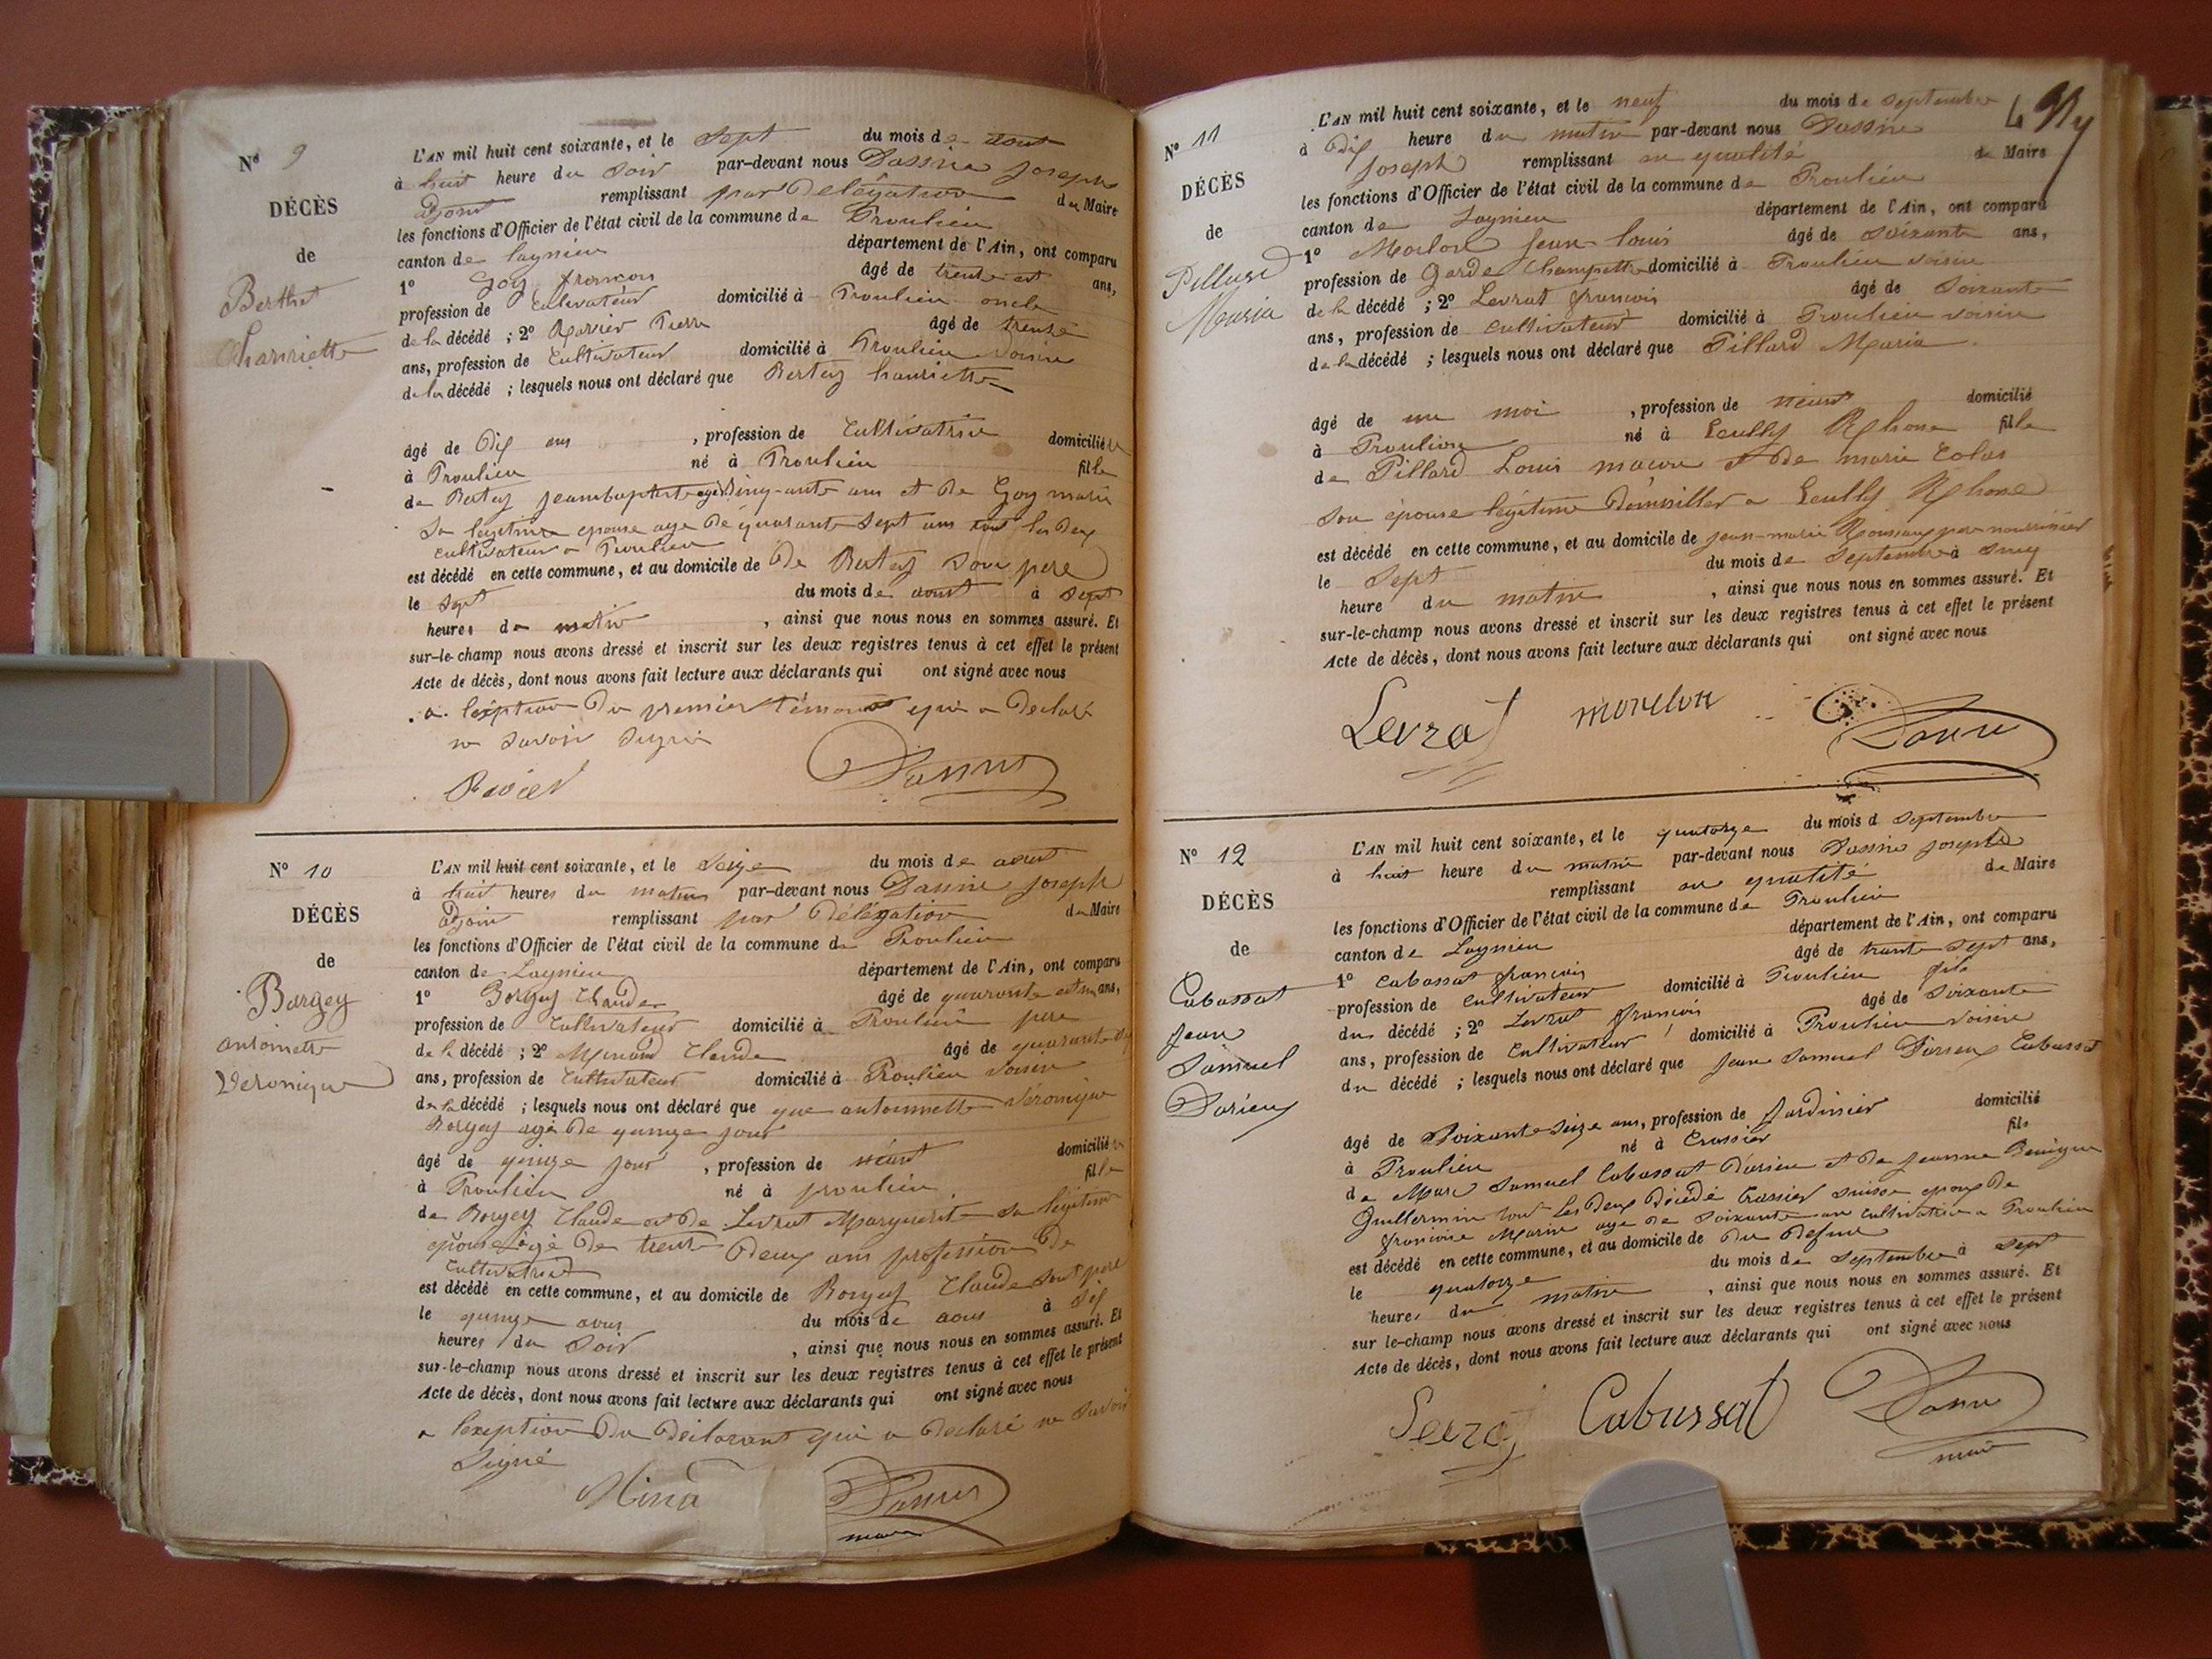 N° 9
DÉCÈS
de
Berthet
hanriette
L'AN mil huit cent soixante, et le sept du mois de aout
à huit heure du soir par-devant nous Dassin Joseph
adjoint remplissant par délégation du Maire
les fonctions d'Officier de l'état civil de la commune de Proulieu
canton de lagnieu département de l'Ain, ont comparu
1° Goy françois âgé de trente et ans,
profession de Cultivateur domicilié à Proulieu oncle
de la décédé ; 2° Ravier Pierre âgé de trente
ans, profession de Cultivateur domicilié à Proulieu voisin
de la décédé ; lesquels nous ont déclaré que Bertey hanriette
âgé de Dix ans , profession de Cultivatrice domicilié
à Proulieu né à Proulieu fille
de Bertey jeanbaptiste agé ans et de Goy marie
sa legitime epouse age de quarante sept ans tout les deux
cultivateur a Proulieu
est décédé en cette commune, et au domicile de De Bertey son pere
le sept du mois de aout à sept
heures de matin , ainsi que nous nous en sommes assuré. Et
sur-le-champ nous avons dressé et inscrit sur les deux registres tenus à cet effet le présent
Acte de décès, dont nous avons fait lecture aux déclarants qui ont signé avec nous
a lexption du premier témoin qui a declaré
ne savoir signé
Ravier
N° 10
DÉCÈS
de
Borgey
antoinette
Veronique
L'AN mil huit cent soixante, et le seize du mois de aout
à huit heures du matin par-devant nous Dassin Joseph
adjoin remplissant par délégation du Maire
les fonctions d'Officier de l'état civil de la commune de Proulieu
canton de Lagnieu département de l'Ain, ont comparu
1° Borgey Claude âgé de quarante et un ans,
profession de Cultivateur domicilié à Proulieu pere
de la décédé ; 2° Minand Claude âgé de quarante
ans, profession de Cultivateur domicilié à Proulieu voisin
de la décédé ; lesquels nous ont déclaré que que antoinnette Véronique
Borgey agé de quinze jour
âgé de quinze jour , profession de néant domicilié
à Proulieu né à proulieu fille
de Borgey Claude et de Levrat Marguerite sa legitime
épouse agé de trente Deux ans profession de
Cultivatrice
est décédé en cette commune, et au domicile de Borgey Claude son pere
le quinze aous du mois de aous à dix
heures du soir , ainsi que nous nous en sommes assuré. Et
sur-le-champ nous avons dressé et inscrit sur les deux registres tenus à cet effet le présent
Acte de décès, dont nous avons fait lecture aux déclarants qui ont signé avec nous
a lexeption du déclarant qui a declaré ne savoir
signé
Mina
maire
N° 11
DÉCÈS
de
Maria
L'AN mil huit cent soixante, et le neuf du mois de septembre
à Dix heure du matin par-devant nous Dassin
Joseph remplissant en qualité de Maire
les fonctions d'Officier de l'état civil de la commune de Proulieu
canton de Lagnieu département de l'Ain, ont comparu
1° Morlon Jean louis âgé de soixante ans,
profession de Garde Champettre domicilié à Proulieu voisin
de la décédé ; 2° Levrat françois âgé de soixante
ans, profession de cultivateur domicilié à Proulieu voisin
de la décédé ; lesquels nous ont déclaré que Pillard Maria
âgé de un moi , profession de néant domicilié
à Proulieu né à Rhone fille
de Pillard Louis macon et de marie Colas
son épouse légitime a Rhone
est décédé en cette commune, et au domicile de jean-marie pere nourrissier
le sept du mois de septembre à
heure du matin , ainsi que nous nous en sommes assuré. Et
sur-le-champ nous avons dressé et inscrit sur les deux registres tenus à cet effet le présent
Acte de décès, dont nous avons fait lecture aux déclarants qui ont signé avec nous
Levrat morelon
N° 12
DÉCÈS
de
Cabossat
Jean
Samuel
Darieux
L'AN mil huit cent soixante, et le quatorze du mois d septembre
à huit heure du matin par-devant nous Dassin Joseph
remplissant en qualité de Maire
les fonctions d'Officier de l'état civil de la commune de Proulieu
canton de Lagnieu département de l'Ain, ont comparu
1° Cabossat françois âgé de trante sept ans,
profession de Cultivateur domicilié à Proulieu fils
du décédé ; 2° Levrat françois âgé de soixante
ans, profession de Cultivateur domicilié à Proulieu voisin
du décédé ; lesquels nous ont déclaré que Jean Samuel Cabussat
âgé de soixante seize ans, profession de Jardinier domicilié
à Proulieu né à Crassier fils
de Marc Samuel Cabossat et de Jeanne
Guillermin tout les deux décédé Crassier suisse epoux de
françoise Marin age de soixante ans cultivatrice a Proulieu
est décédé en cette commune, et au domicile de du defunt
le quatorze du mois de septembre à sept
heures du matin , ainsi que nous nous en sommes assuré. Et
sur le-champ nous avons dressé et inscrit sur les deux registres tenus à cet effet le présent
Acte de décès, dont nous avons fait lecture aux déclarants qui ont signé avec nous
Cabussat